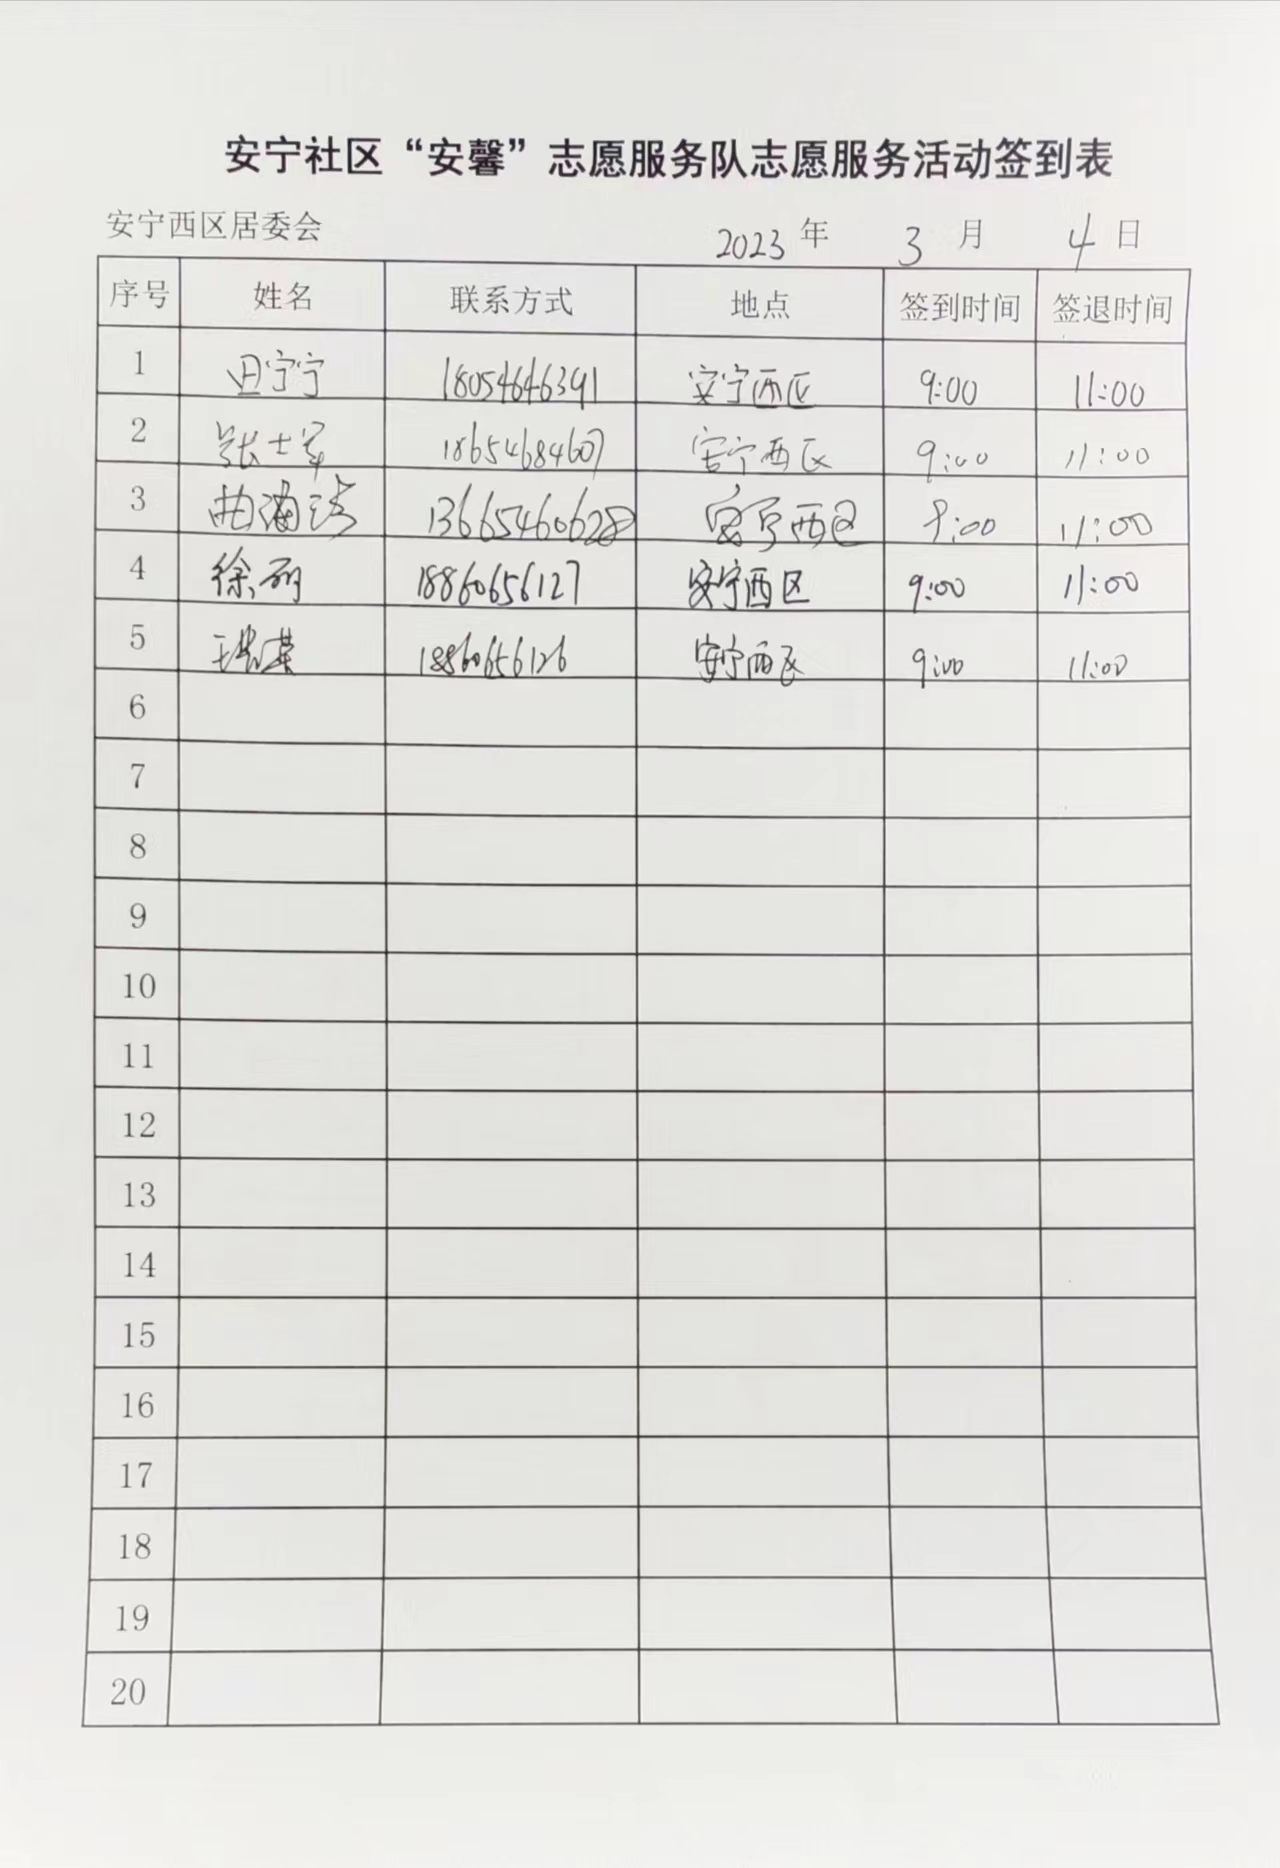 安宁社区“安馨”志愿服务队志愿服务活动签到表
安宁西区居委会 2023 年 3 月 4 日
序号 姓名 联系方式 地点 签到时间 签退时间
1 田宁宁 18054646391 安宁西区 9:00 11:00
2 张士军 18654684607 安宁西区 9:00 11:00
3 曲海涛 13665460628 安宁西区 9:00 11:00
4 徐丽 18860656127 安宁西区 9:00 11:00
5 18860656126 安宁西区 9:00 11:00
6
7
8
9
10
11
12
13
14
15
16
17
18
19
20